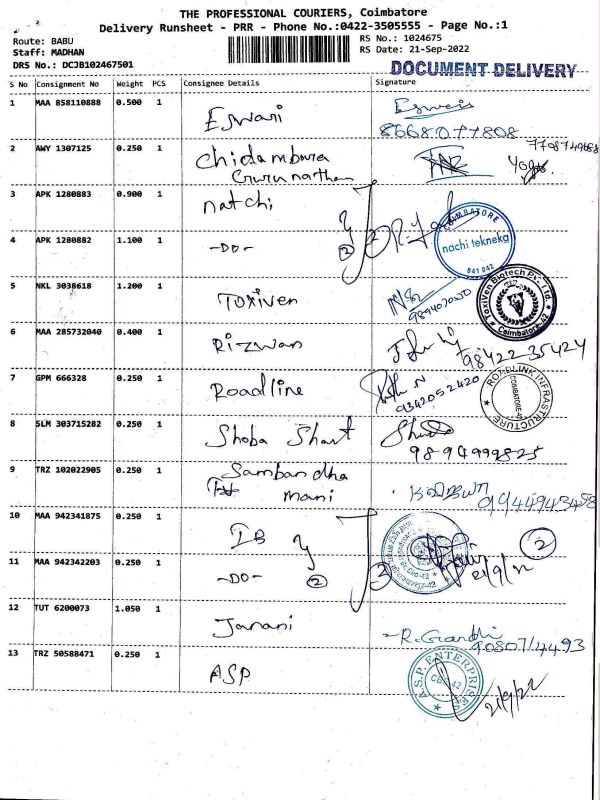 THE PROFESSIONAL COURIERS, Coimbatore
Delivery Runsheet - PRR - Phone No.:0422-3505555 - Page No.:1
Route: BABU RS No.: 1024675
Staff: MADHAN RS Date: 21-Sep-2022
DRS No.: DCJB102467501 DOCUMENT DELIVERY
S No Consignment No Weight PCS Consignee Details Signature
1 MAA 858110888 0.500 1 Eswari
8668077808
2 AWY 1307125 0.250 1 Chidambara
Gurunathan
3 APK 1280883 0.900 1 natchi
COIMBATORE nachi tekneka 641 042
4 APK 1280882 1.100 1 -DO- 2
5 NKL 3038618 1.200 1 Toxiven
Toxiven Biotech Pvt. Ltd. Coimbatore-42
6 MAA 285732040 0.400 1 Rizwan
98422-35424
7 GPM 666328 0.250 1 Roadline
9342052420
ROADLINK INFRASTRUCTURE COIMBATORE-42
8 SLM 303715282 0.250 1 Shoba Shart
9894999825
9 TRZ 102022905 0.250 1 Sambandha
mani
10 MAA 942341875 0.250 1 IB 2
11 MAA 942342203 0.250 1 -DO- 2
21/9/22
12 TUT 6200073 1.050 1 Janani R. Gandhi
9080714493
13 TRZ 50588471 0.250 1 ASP
A.S.P. ENTERPRISES CBE-42
21/9/22